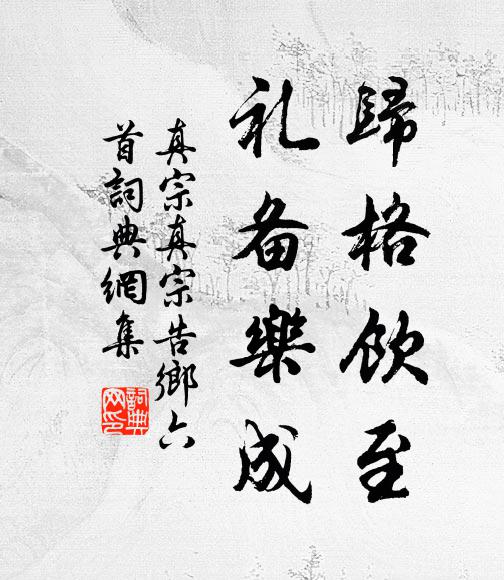 歸格飲至
礼备樂成
真宗真宗告鄉六
首詞典網集
詞典
网印